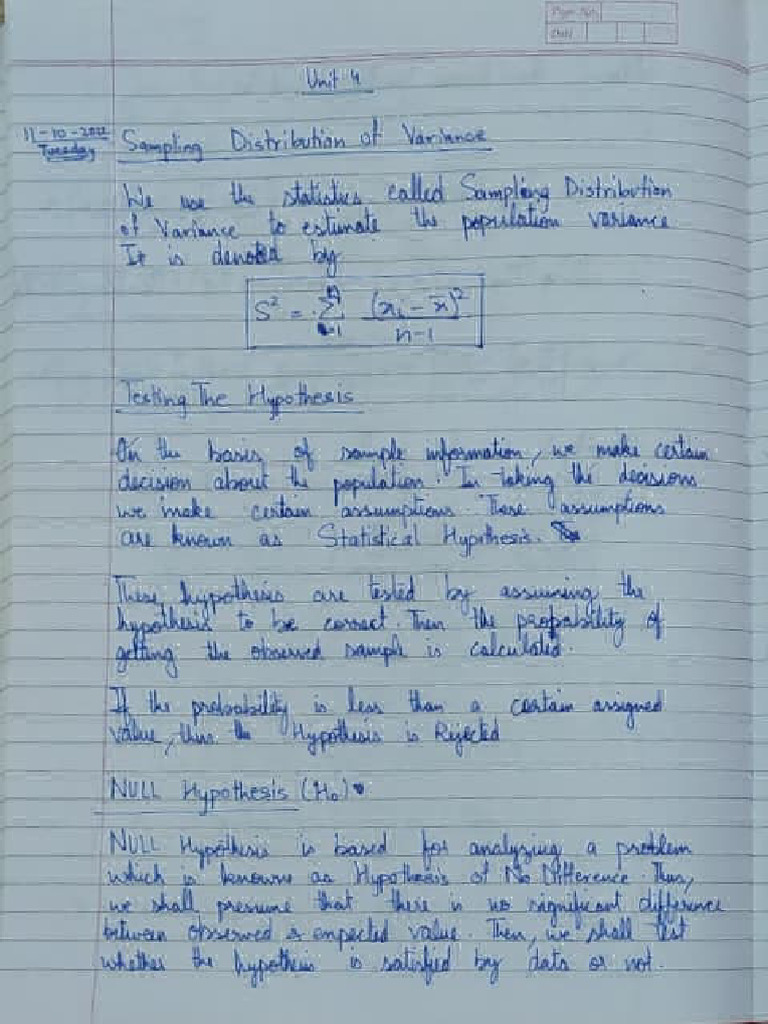 Page No.
Date
Unit 4
11-10-2022
Tuesday
Sampling Distribution of Variance
We use the statistics called Sampling Distribution
of Variance to estimate the population variance
It is denoted by
S² = Σ (xi - x̄)² / n-1
Testing The Hypothesis
On the basis of sample information, we make certain
decision about the population. In taking the decisions
we make certain assumptions. These assumptions
are known as Statistical Hypothesis.
These hypothesis are tested by assuming the
hypothesis to be correct. Then the probability of
getting the observed sample is calculated.
If the probability is less than a certain assigned
value, then the Hypothesis is Rejected
NULL Hypothesis (H₀)
NULL Hypothesis is based for analyzing a problem
which is known as Hypothesis of No Difference. Thus,
we shall presume that there is no significant difference
between observed & expected value. Then, we shall test
whether the hypothesis is satisfied by data or not.